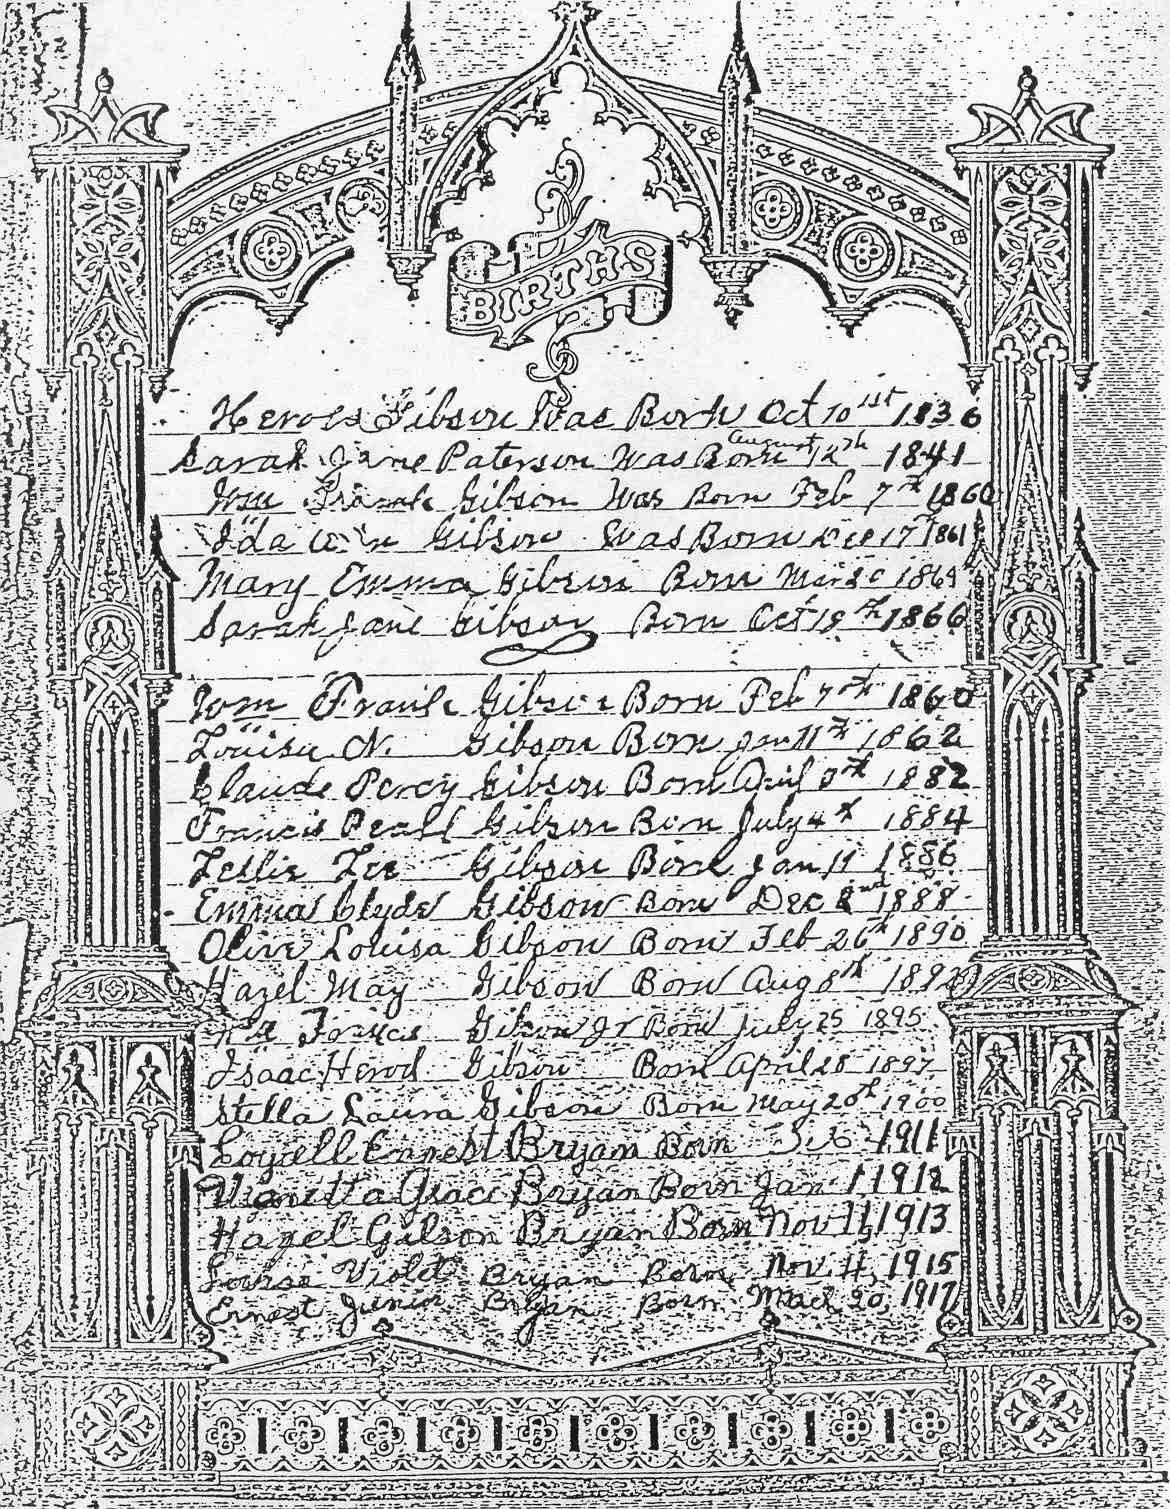 BIRTHS
Herods Gibson Was Born Oct 10 1st 1836
Sarah Jane Paterson Was Born August 12th 1841
Tom Frank Gibson Was Born Feb 7th 1860
Ida Gibson Was Born Dec 17th 1861
Mary Emma Gibson Born Mar 1864
Sarah Jane Gibson Born Oct 18th 1866
Tom Frank Gibson Born Feb 7th 1860
Louisa N. Gibson Born Jan 11th 1862
Claude Percy Gibson Born April 1882
Francis Pearl Gibson Born July 4th 1884
Leslie Lee Gibson Born Jan 11 1886
Emma Clyde Gibson Born Dec 2nd 1888
Olive Louisa Gibson Born Feb 26th 1890
Hazel May Gibson Born Aug 8th 1892
Francis Gibson Jr Born July 25 1895
Isaac Herod Gibson Born April 28 1897
Stella Laura Gibson Born May 20th 1900
Loyell Ernest Bryan Born 1911
Grace Bryan Born Jan 1 1912
Hazel Gilson Bryan Born Nov 1913
Louise Violet Bryan Born Nov. 4, 1915
Ernest Junior Bryan Born 20, 1917